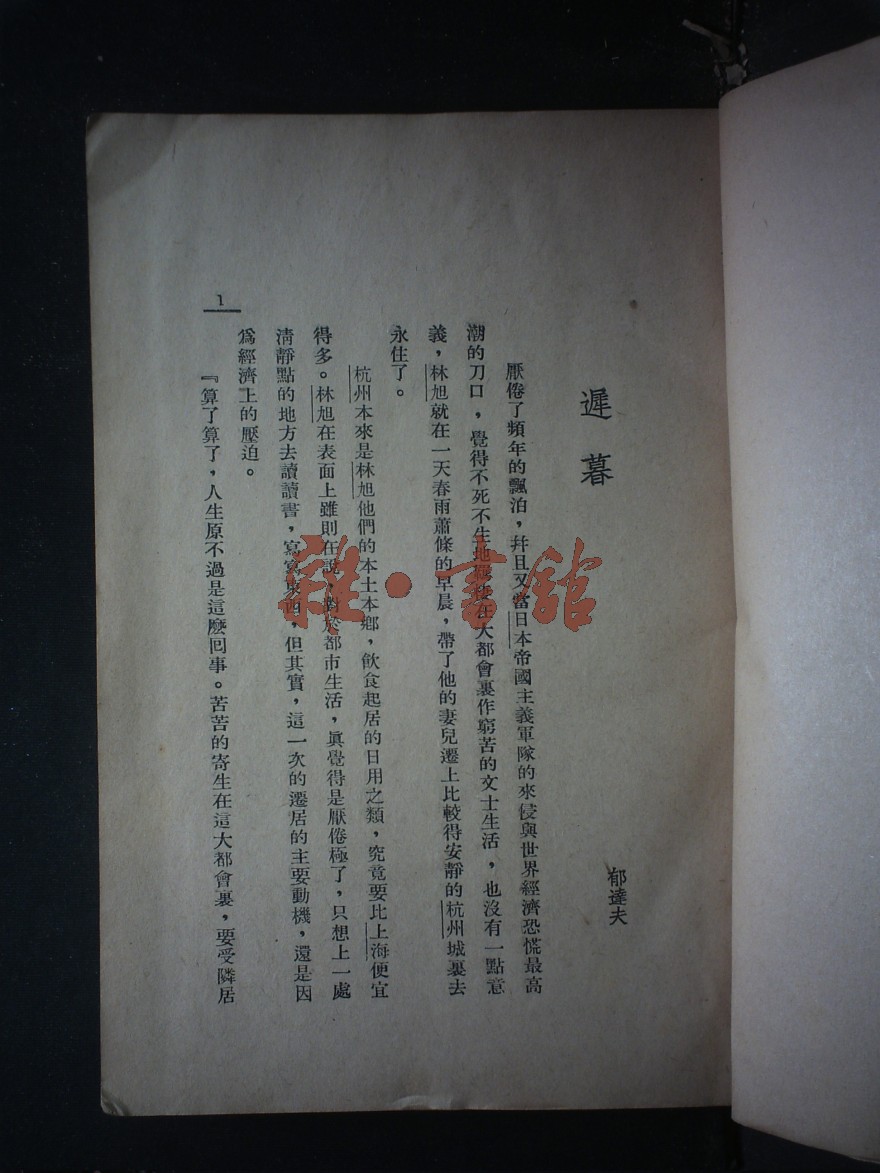 遲暮
郁達夫
厭倦了頻年的飄泊，幷且又當日本帝國主義軍隊的來侵與世界經濟恐慌最高
潮的刀口，覺得不死不生地羈棲在大都會裏作窮苦的文士生活，也沒有一點意
義，林旭就在一天春雨蕭條的早晨，帶了他的妻兒遷上比較得安靜的杭州城裏去
永住了。
杭州本來是林旭他們的本土本鄉，飲食起居的日用之類，究竟要比上海便宜
得多。林旭在表面上雖則在說，對於都市生活，眞覺得是厭倦極了，只想上一處
淸靜點的地方去讀讀書，寫寫東西，但其實，這一次的遷居的主要動機，還是因
爲經濟上的壓迫。
『算了算了，人生原不過是這麽回事。苦苦的寄生在這大都會裏，要受隣居
1
雜·書館